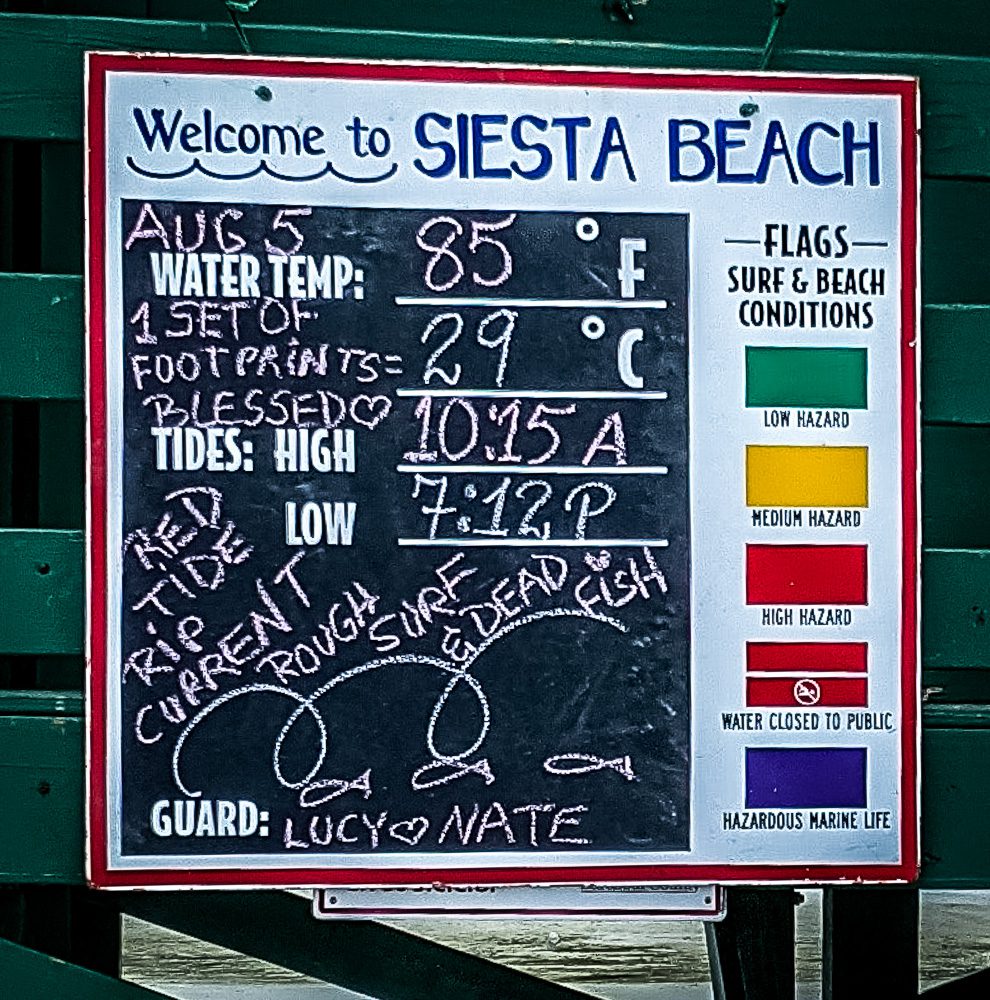 Welcome to SIESTA BEACH
AUG 5
WATER TEMP: 85 °F
1 SET OF
29 °C
FOOTPRINTS=
BLESSED♡
TIDES: HIGH 10:15 A
LOW 7:12 P
RED
TIDE
RIP
CURRENT
ROUGH
SURF
& DEAD
FISH
GUARD: LUCY♡NATE
FLAGS
SURF & BEACH
CONDITIONS
LOW HAZARD
MEDIUM HAZARD
HIGH HAZARD
WATER CLOSED TO PUBLIC
HAZARDOUS MARINE LIFE